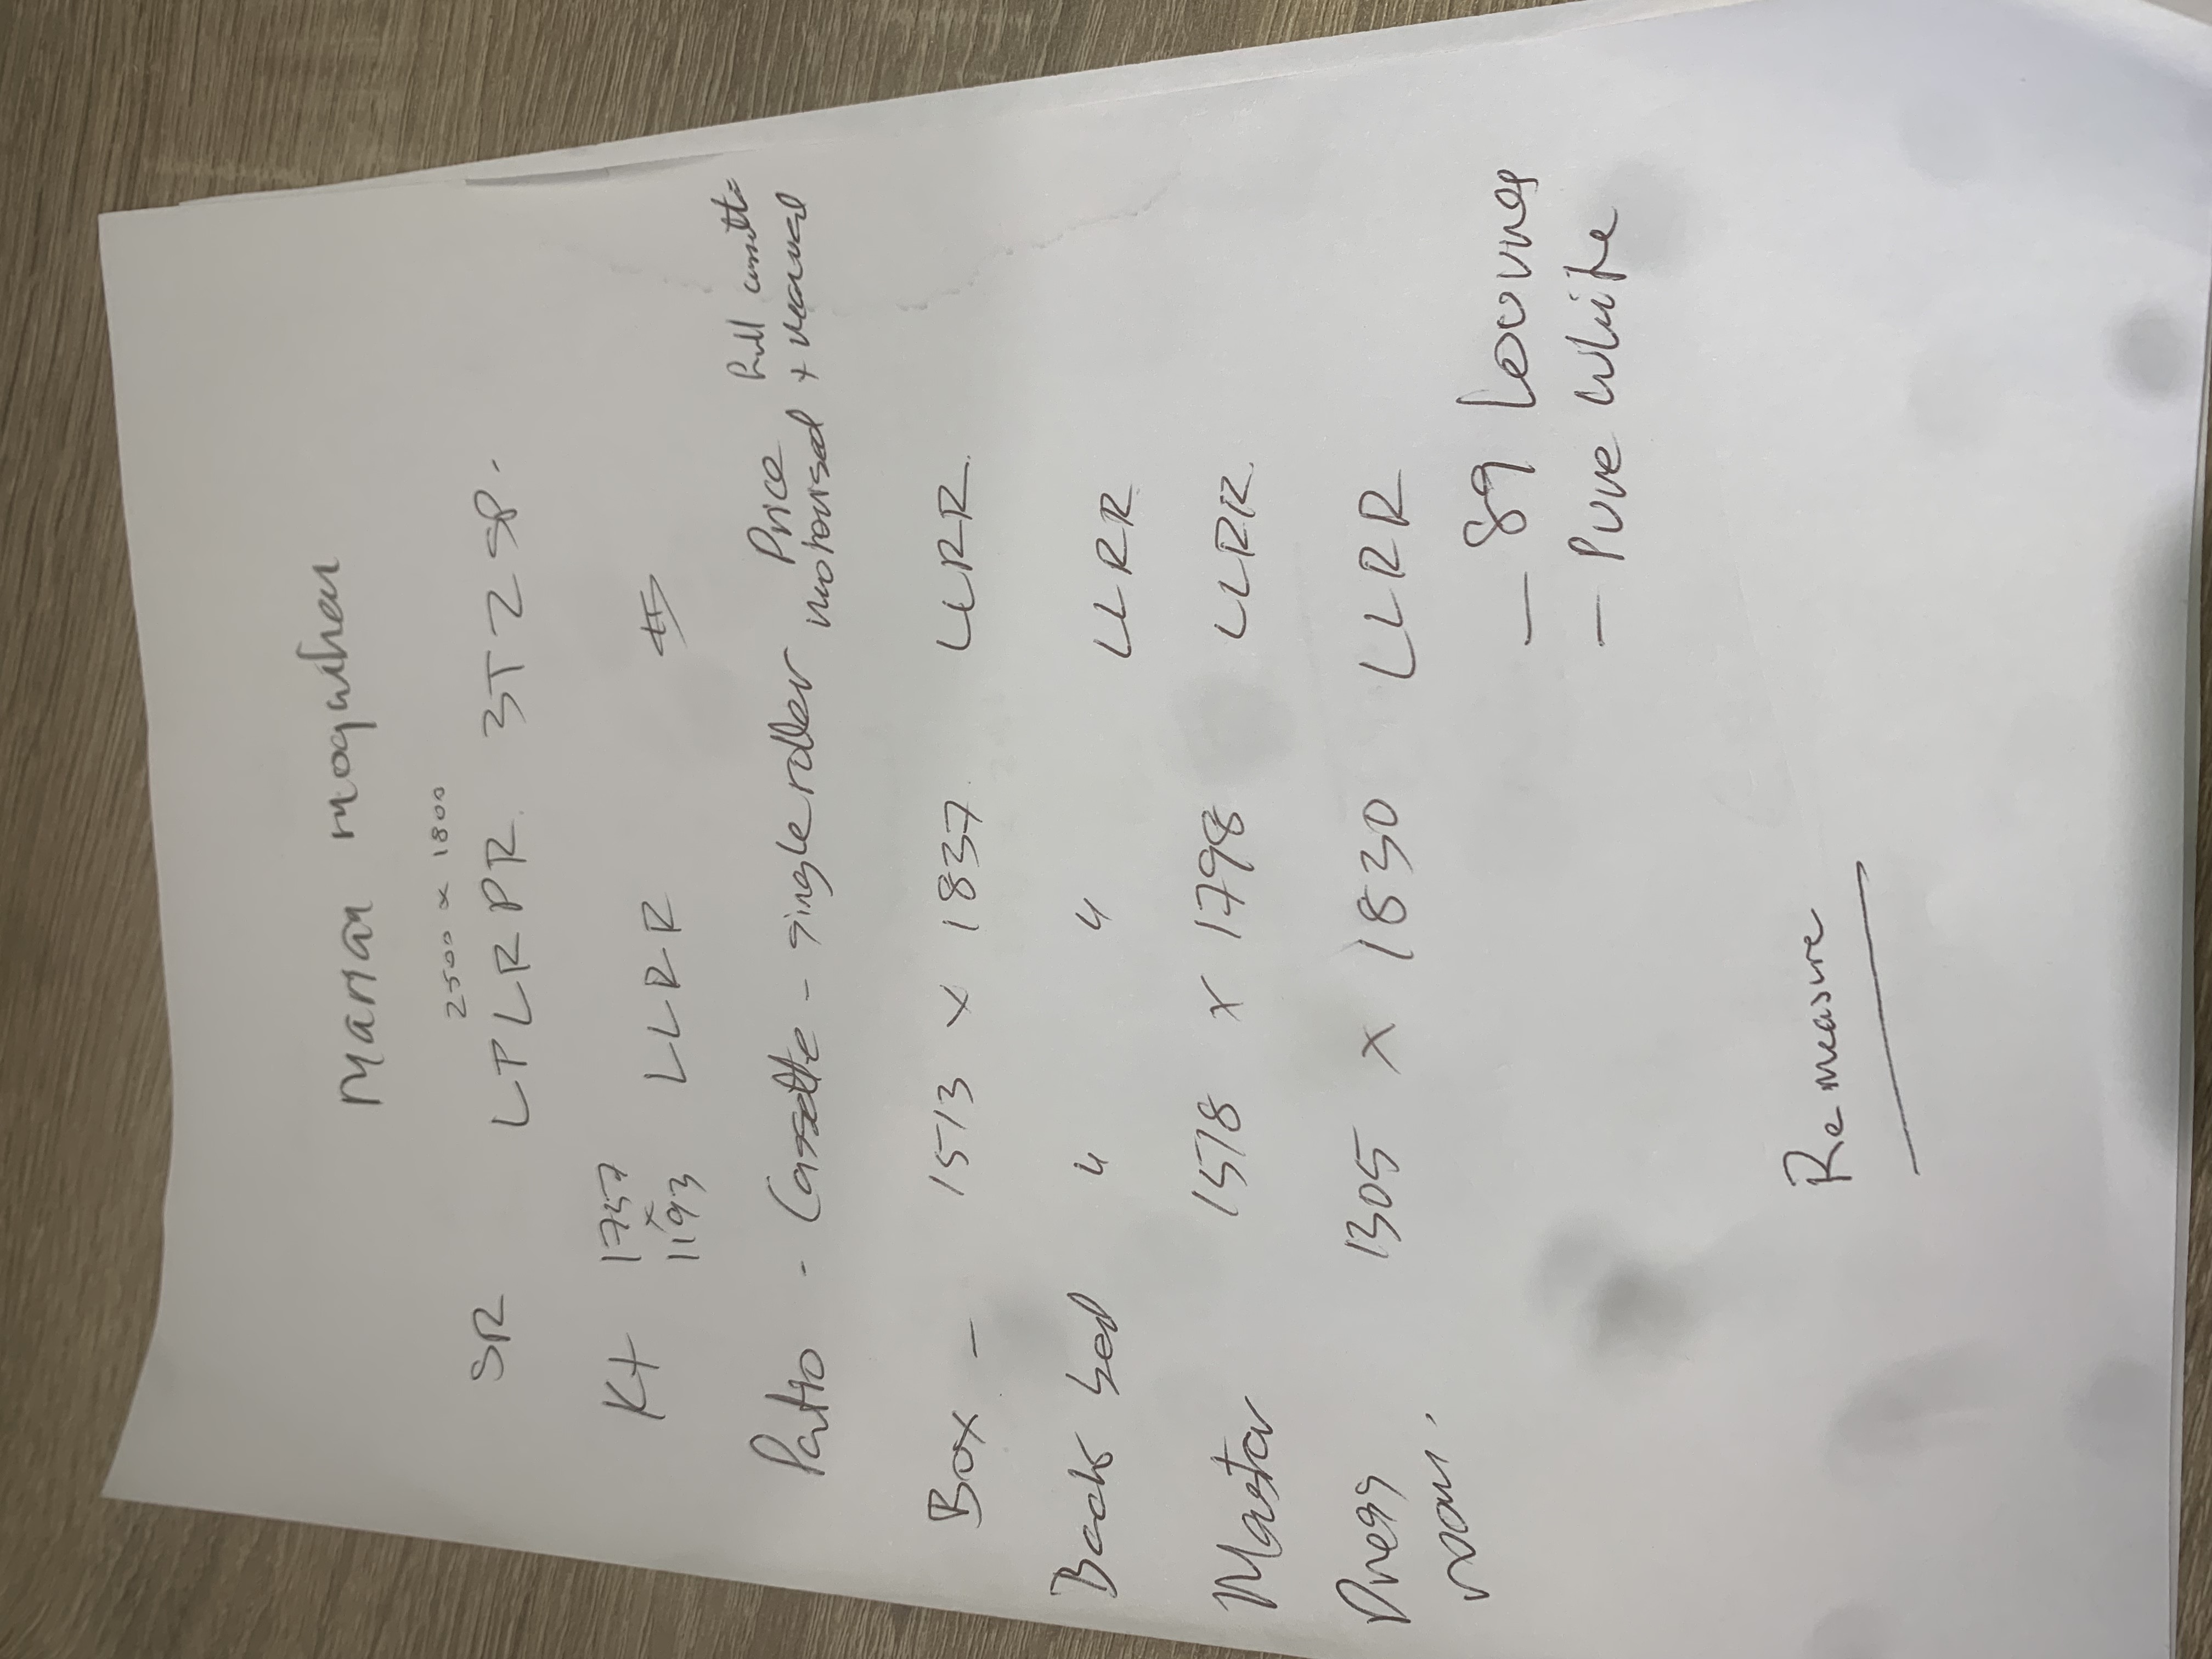 Marian
2500 x 1800
SR LTPLRPR 3T2SP.
Kt 1757 x 1193 LLRR
Price full
Patio - Cassette - single roller motorised + manual
Box - 1513 x 1837 LLRR
Back bed 4 4 LLRR
Master 1518 x 1798 LLRR
Dress room. 1305 x 1830 LLRR
- 89 Louvres
- Pure white
Remeasure